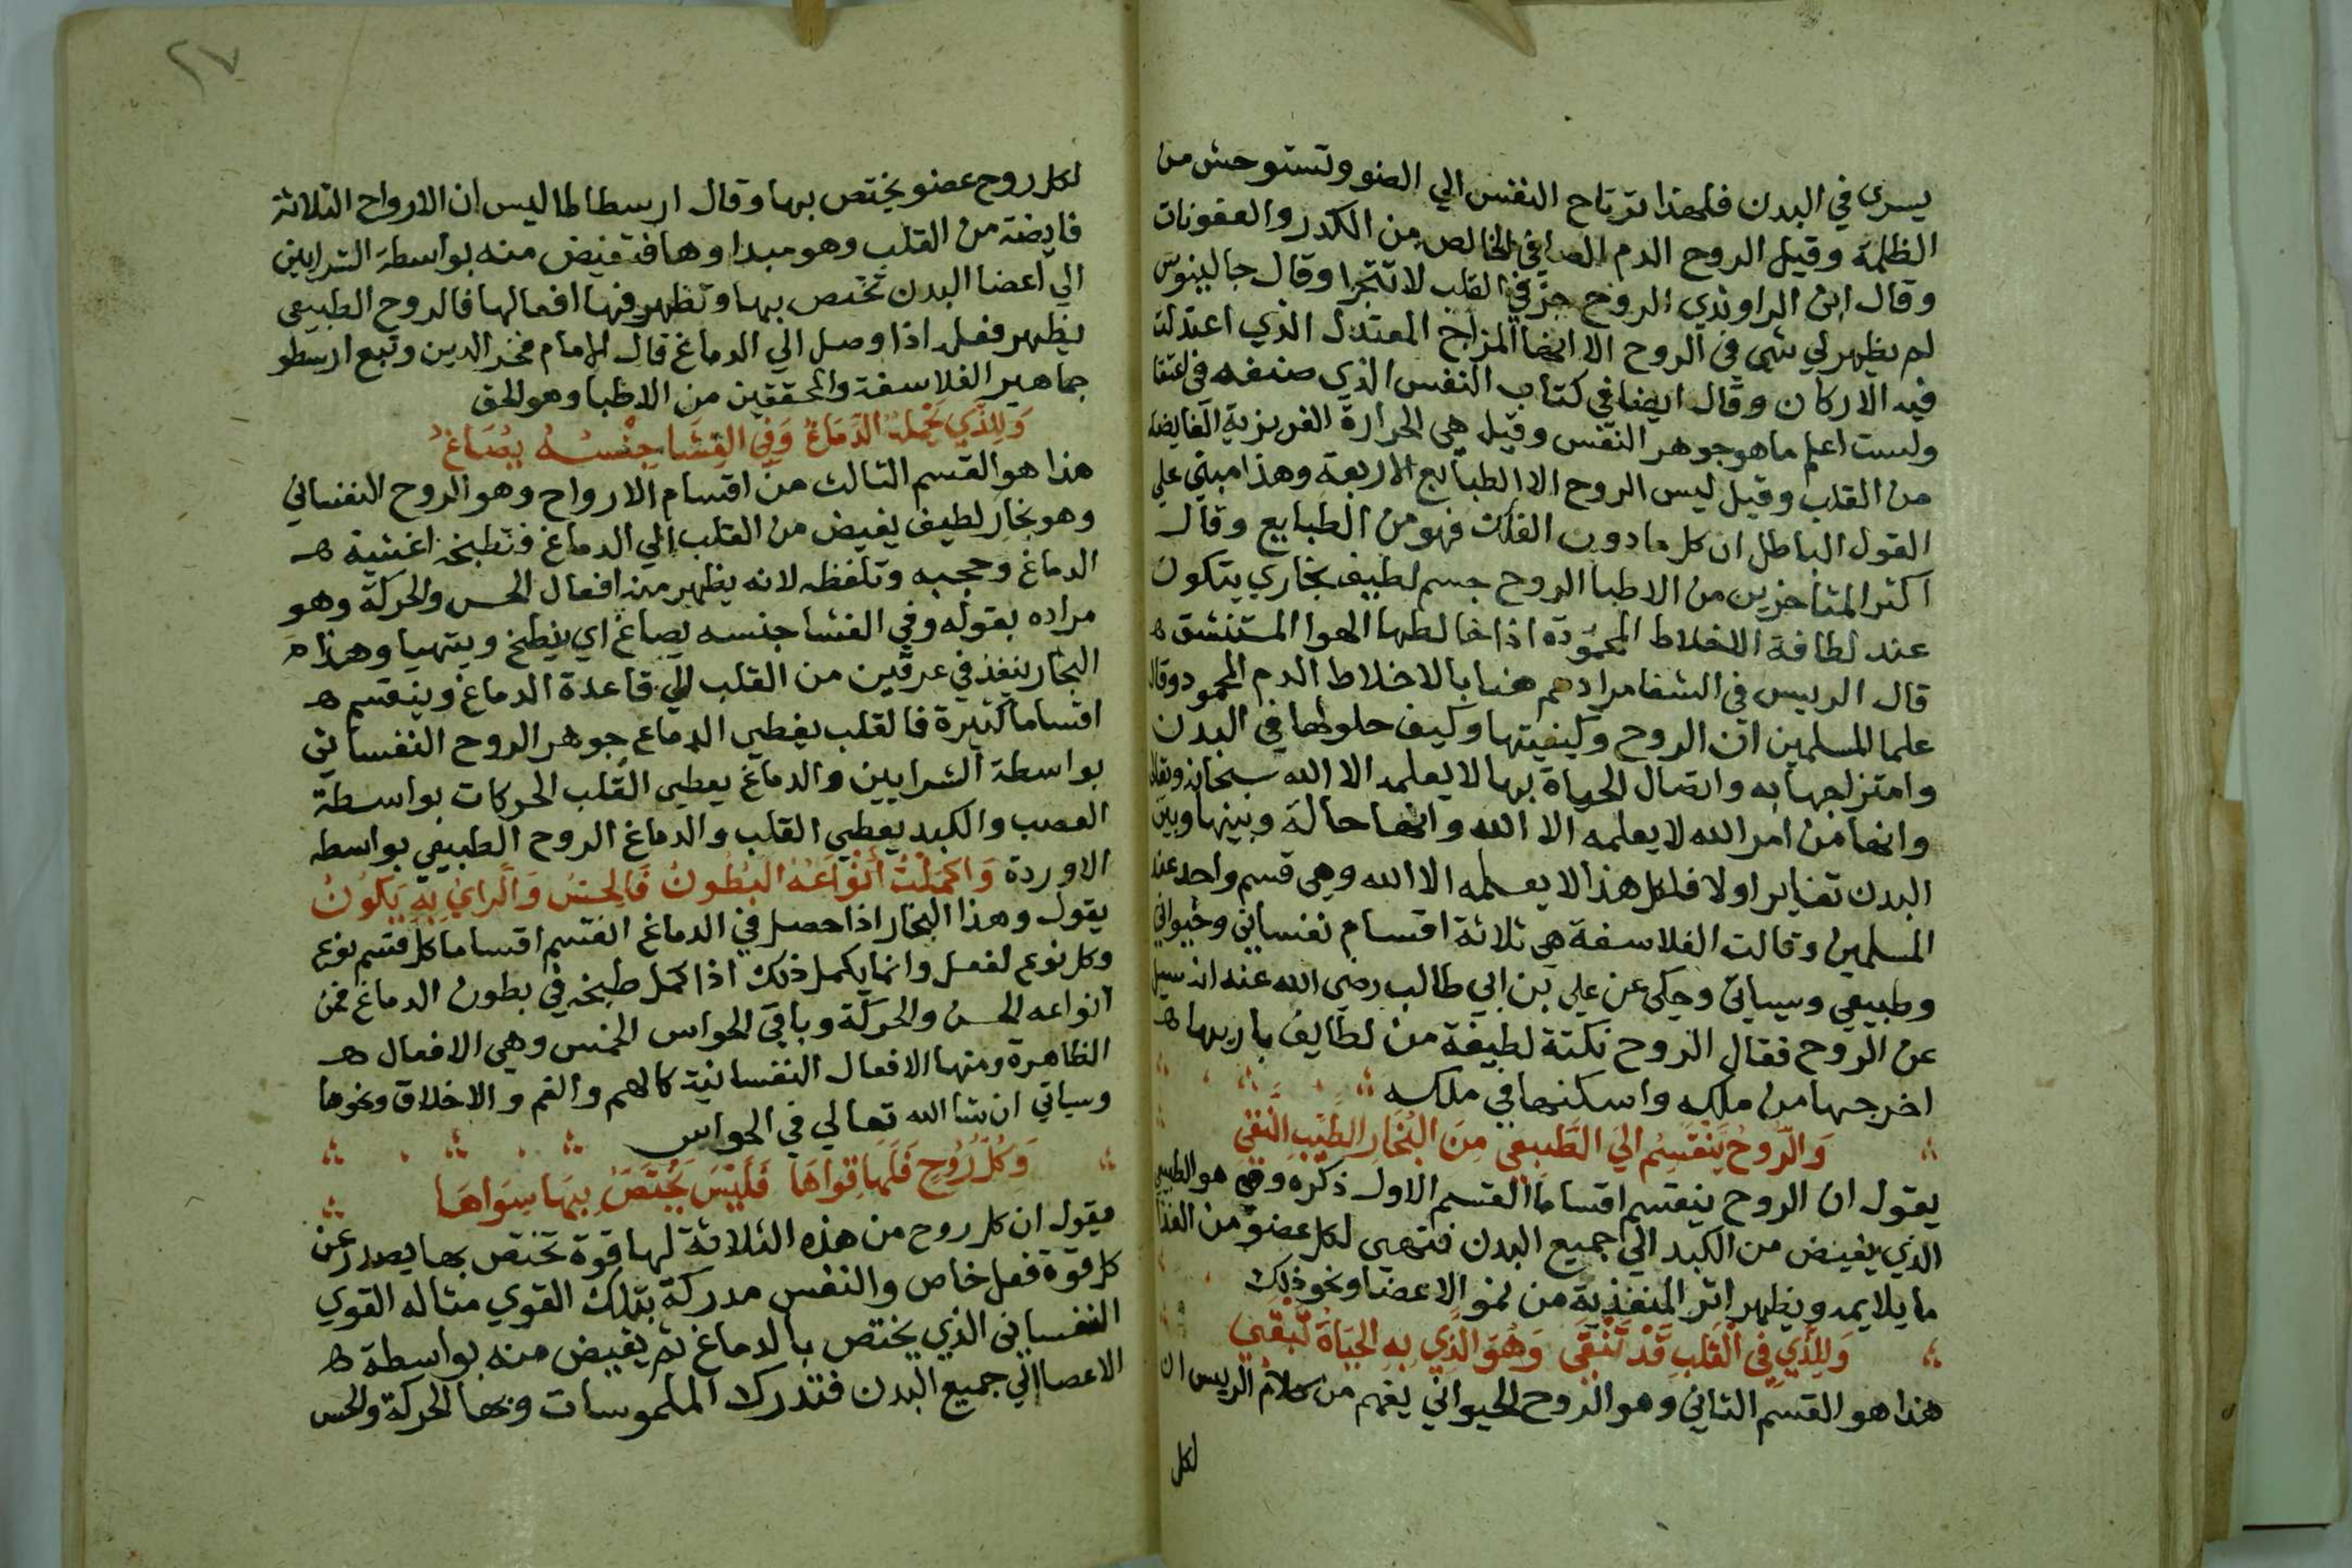 يسري في البدن فلهذا ترتاح النفس الي الضو وتستوحش من
الظلمة وقيل الروح الدم الصافي الخالص من الكدر والعفونات
وقال ابن الراوندي الروح جزفي القلب لا تتجزا وقال جالينوس
لم يظهر لي شي في الروح الا انها المزاج المعتدل الذي اعتدلت
فيه الاركان وقال ايضا في كتاب النفس الذي صنفه في اعتقا
ولست اعلم ما هو جوهر النفس وقيل هي الحرارة الغريزية الفايضة
من القلب وقيل ليس الروح الا الطبايع الاربعة وهذا مبني علي
القول الباطل ان كل ما دون الفلك فهو من الطبايع وقال
اكثر المتاخرين من الاطبا الروح جسم لطيف بخاري يتكون
عند لطافة الاخلاط المحمودة اذا خالطها الهوا المستنشق ه
قال الرييس في الشفا مرادهم هنا بالاخلاط الدم المحمود وقال
علما المسلمين ان الروح وكيفيتها وكيف حلولها في البدن
وامتزاجها به واتصال الحياة بها لا يعلمه الا الله سبحانه وتعالي
وانها من امر الله لا يعلمه الا الله وانها حالة وبينها وبين
البدن تغاير اولا فلكل هذا لا يعلمه الا الله وهي قسم واحد عند
المسلمين وقالت الفلاسفة هي ثلاثة اقسام نفساني وحيواني
وطبيعي وسياتي وحكي عن علي بن ابي طالب رضي الله عنه انه سيل
عن الروح فقال الروح نكتة لطيفة من لطايف باريها ه
اخرجها من ملكه واسكنها في ملكه
وَالرُّوحُ يَنْقَسِمُ الَي الطَّبِيعِي مِنَ البُخَارِ الطَّيِّبِ النَّقِي
يقول ان الروح ينقسم اقساما القسم الاول ذكره وهي هو الطبيعي
الذي يفيض من الكبد الي جميع البدن فتهي لكل عضو من الغذا
ما يلايمه ويظهر اثر المنفذية من نمو الاعضا ونحو ذلك
وَلِلَّذِي فِي القَلبِ قَدْ تَنْقَي وَهُوَ الَذِي بِهِ الحَيَاةُ تَبْقَي
هذا هو القسم الثاني وهو الروح الحيواني يفهم من كلام الرييس ان
لكل
٢٧
لكل روح عضو يختص بها وقال ارسطاطاليس ان الارواح الثلاثة
فايضة من القلب وهو مبداوها فتفيض منه بواسطة الشرايين
الي اعضا البدن تختص بها وتظهر فيها افعالها فالروح الطبيعي
يظهر فعله اذا وصل الي الدماغ قال الامام فخر الدين وتبع ارسطو
جماهير الفلاسفة والمحققين من الاطبا وهو الحق
وَلِلَّذِي يَحْمِلهُ الدِّمَاغُ وَفِي الغِشَا جِنْسُهُ يُصَاغُ
هذا هو القسم الثالث من اقسام الارواح وهو الروح النفساني
وهو بخار لطيف يفيض من القلب الي الدماغ فتطبخه اغشية ه
الدماغ وحجبه وتلفظه لانه يظهر منه افعال الحس والحركة وهو
مراده بقوله وفي الغشا جنسه يصاغ اي ينطبخ ويتهيا وهذا
البخار ينفذ في عرقين من القلب الي قاعدة الدماغ وينقسم ه
اقساما كثيرة فالقلب يعطي الدماغ جوهر الروح النفساني
بواسطة الشرايين والدماغ يعطي القلب الحركات بواسطة
العصب والكبد يعطي القلب والدماغ الروح الطبيعي بواسطه
الاوردة وَاكمَلَتْ أنْوَاعَهُ البُطُونُ فَالحِسُّ وَالَّرايُ بِهِ يَكُونُ
يقول وهذا البخار اذا حصل في الدماغ انقسم اقساما كل قسم نوع
وكل نوع لفعل وانما يكمل ذلك اذا كمل طبخه في بطون الدماغ فمن
انواعه الحس والحركة وباقي الحواس الخمس وهي الافعال ه
الظاهرة ومنها الافعال النفسانية كالهم والغم والاخلاق ونحوها
وسياتي ان شا الله تعالي في الحواس
وَكُلُّ رُوْحٍ فَلَهَا قِوَاهَا فَلَيْسَ يَخْتَصُّ بِهَا سِوَاهَا
فيقول ان كل روح من هذه الثلاثة لها قوة تختص بها يصدر عن
كل قوة فعل خاص والنفس مدركة بتلك القوي مثاله القوي
النفساني الذي يختص بالدماغ ثم يفيض منه بواسطة ه
الاعصا الي جميع البدن فتدرك الملموسات وبها الحركة والحس